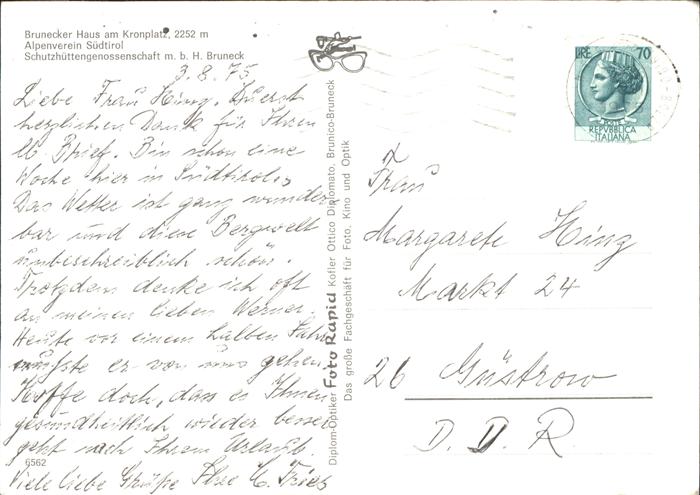 Brunecker Haus am Kronplatz, 2252 m
Alpenverein Südtirol
Schutzhüttengenossenschaft m. b. H. Bruneck
3.8.75
Liebe Frau Hinz. Zuerst
herzlichen Dank für Ihren
lb Brief. Bin schon eine
Woche hier in Südtirol.
Das Wetter ist ganz wunder
bar und diese Bergwelt
unbeschreiblich schön.
Trotzdem denke ich oft
an meinen lieben Werner.
Heute vor einem halben Jahr
mußte er von uns gehen.
Hoffe doch, dass es Ihnen
gesundheitlich wieder besser
geht nach Ihrem Urlaub.
Viele liebe Grüße Ihre
6562
Diplom-Optiker Foto Rapid Kofler Ottico Diplomato, Brunico-Bruneck
Das große Fachgeschäft für Foto, Kino und Optik
LIRE 70
POSTE
REPVBBLICA
ITALIANA
Frau
Margarete Hinz
Markt 24
26 Güstrow
D. D. R.